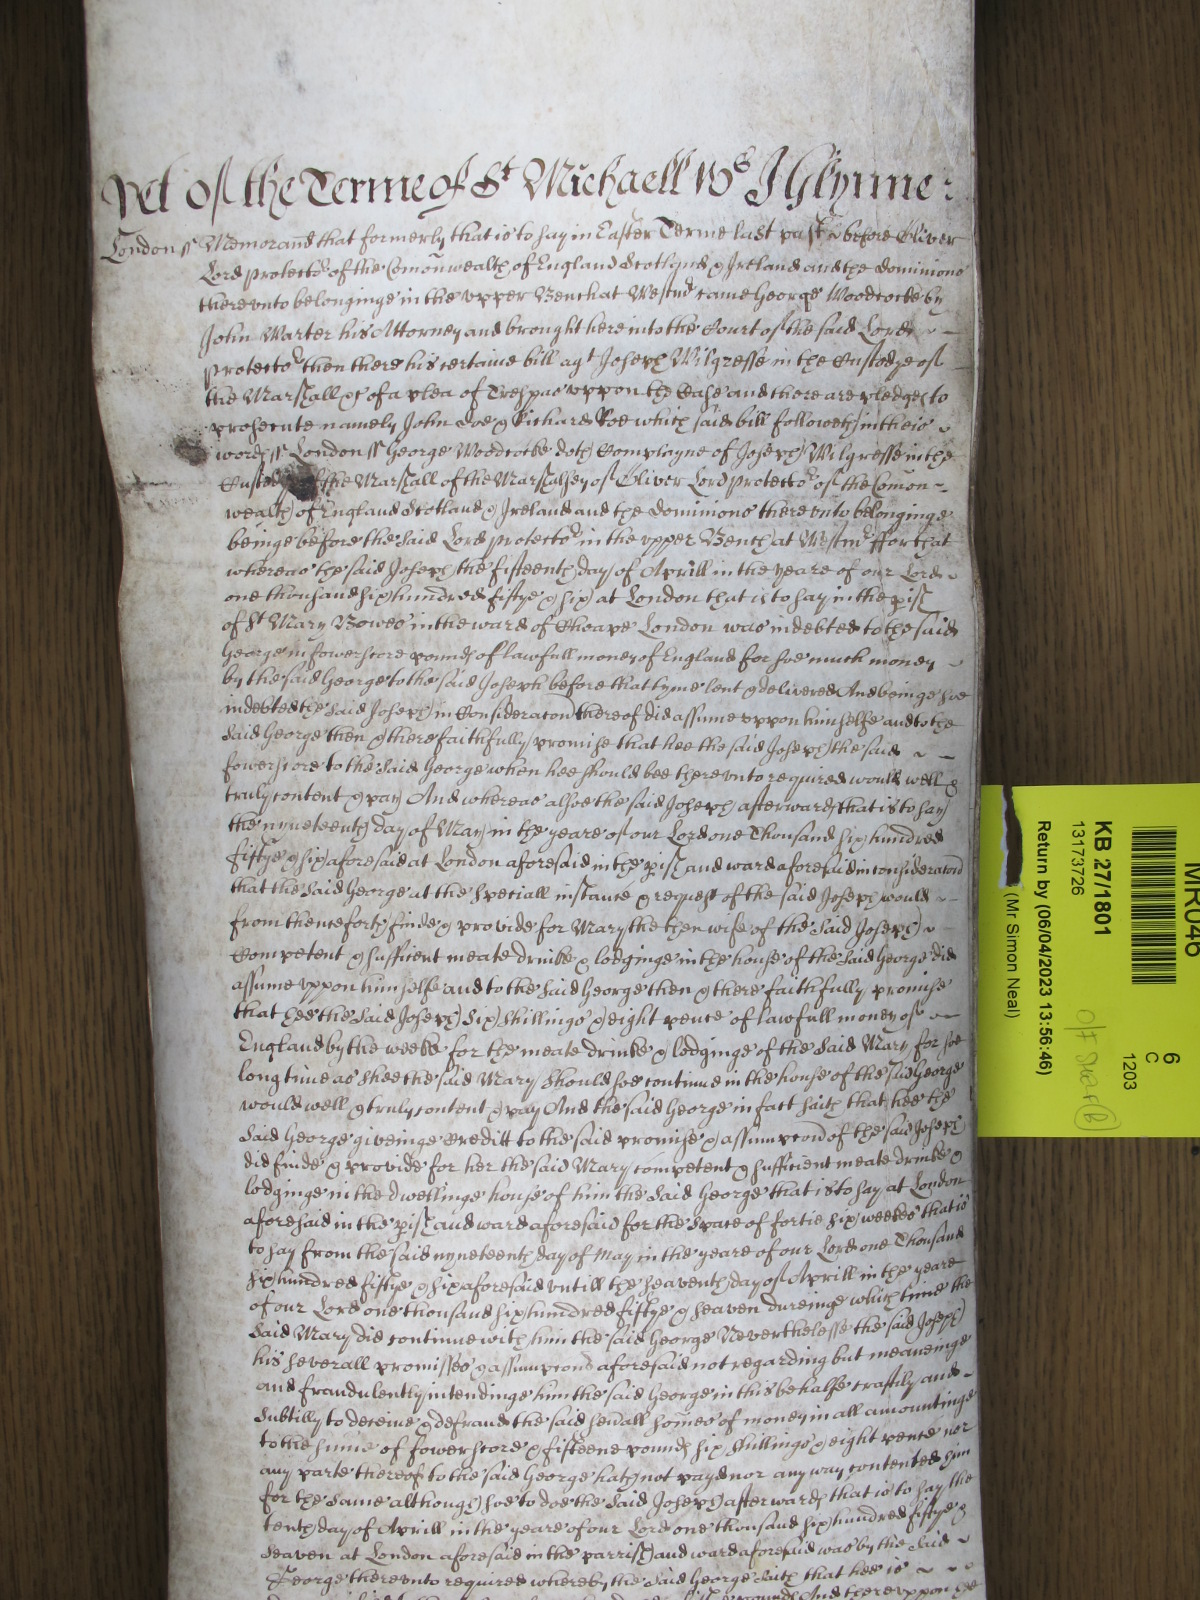 yet of the Terme of St Michaell 1658 J Glynne:
London ss Memorand that formerly that is to say in Easter Terme last past before Oliver
Lord protector of the Comonwealth of England Scotland & Ireland and the dominions
therevnto belonginge in the vpper Bench at Westmr came George Woodcocke by
John Warter his Attorney and brought here into the Court of the said Lord
protector then there his certaine bill agt Joseph Wilgresse in the Custodye of
the Marshall &c of a plea of Trespas vppon the Case and there are pledges to
prosecute namely John Doe & Richard Roe which said bill followeth in theis
words ss London ss George Woodcocke doth Complayne of Joseph Wilgresse in the
Custody of the Marshall of the Marshalsey of Oliver Lord protector of the Comon
wealth of England Scotland & Ireland and the dominions therevnto belonginge
beinge before the said Lord protector in the vpper Bench at Westmr ffor that
whereas the said Joseph the fifteenth day of Aprill in the yeare of our Lord
one thousand six hundred fiftye & six at London that is to say in the pish
of St Mary Bowes in the ward of Cheape London was indebted to the said
George in fowerscore pounds of lawfull money of England for soe much money
by the said George to the said Joseph before that tyme lent & delivered And beinge soe
indebted the said Joseph in Consideracon thereof did assume vppon himselfe and to the
said George then & there faithfully promise that hee the said Joseph the said
fowerscore to the said George when hee should bee therevnto required would well &
truly content & pay And whereas alsoe the said Joseph afterwards that is to say
the nyneteenth day of May in the yeare of our Lord one Thousand six hundred
fiftye & six aforesaid at London aforesaid in the pish and ward aforesaid in consideracon
that the said George at the speciall instance & request of the said Joseph would
from thenceforth finde & provide for Mary the then wife of the said Joseph
Competent & sufficient meate drinke & lodginge in the house of the said George did
assume vppon himselfe and to the said George then & there faithfully promise
that hee the said Joseph Six shillings & eight pence of lawfull money of
England by the weeke for the meate drinke & lodginge of the said Mary for soe
long time as shee the said Mary should soe continue in the house of the said George
would well & truly content & pay And the said George in fact saith that hee the
said George giveinge Creditt to the said promise & assumpcon of the said Joseph
did finde & provide for her the said Mary competent & sufficient meate drinke &
lodginge in the dwellinge house of him the said George that is to say at London
aforesaid in the pish and ward aforesaid for the space of fortie six weekes that is
to say from the said nyneteenth day of May in the yeare of our Lord one Thousand
six hundred fiftye & six aforesaid vntill the seaventh day of Aprill in the yeare
of our Lord one thousand six hundred fiftye & seaven dureinge which time the
said Mary did continue with him the said George Neverthelesse the said Joseph
his severall promisses & assumpcons aforesaid not regarding but meaneinge
and fraudulently intendinge him the said George in this behalfe craftily and
subtilly to deceive & defraud the said seuall somes of money in all amountinge
to the sume of fowerscore & fifteene pounds six shillings & eight pence nor
any parte thereof to the said George hath not payd nor any way contented him
for the same although soe to doe the said Joseph afterwards that is to say the
tenth day of Aprill in the yeare of our Lord one thousand six hundred fiftye &
seaven at London aforesaid in the parrish and ward aforesaid was by the said
George therevnto required whereby the said George saith that hee is
pounds And therevppon he
MR046
6
C
1203
KB 27/1801
13173726
Off Shelf (B)
Return by (06/04/2023 13:56:46)
(Mr Simon Neal)